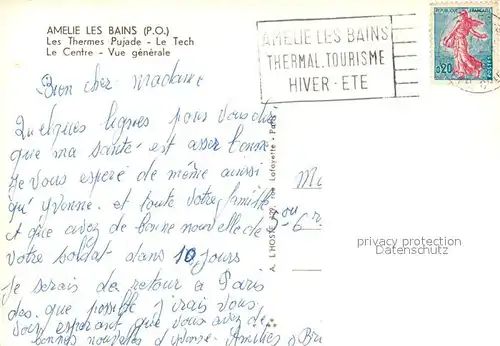 AMELIE LES BAINS (P.O.)
Les Thermes Pujade - Le Tech
Le Centre - Vue générale
AMELIE LES BAINS
THERMAL.TOURISME
HIVER - ETE
REPUBLIQUE FRANÇAISE
0,20
POSTES
Bien cher madame
Quelques lignes pour vous dire
que ma santé est assez bonne
Je vous espere de même aussi
qu'Yvonne et toute votre famille
et que avez de bonne nouvelle de
votre soldat dans 10 jours
Je serais de retour a Paris
des que possible j'irais vous
voir esperant que vous avez de
bonnes nouvelles d'Yvonne Amitiés
A. L'HOSTE rue Lafayette - Paris
5 ou
6
privacy protection
Datenschutz